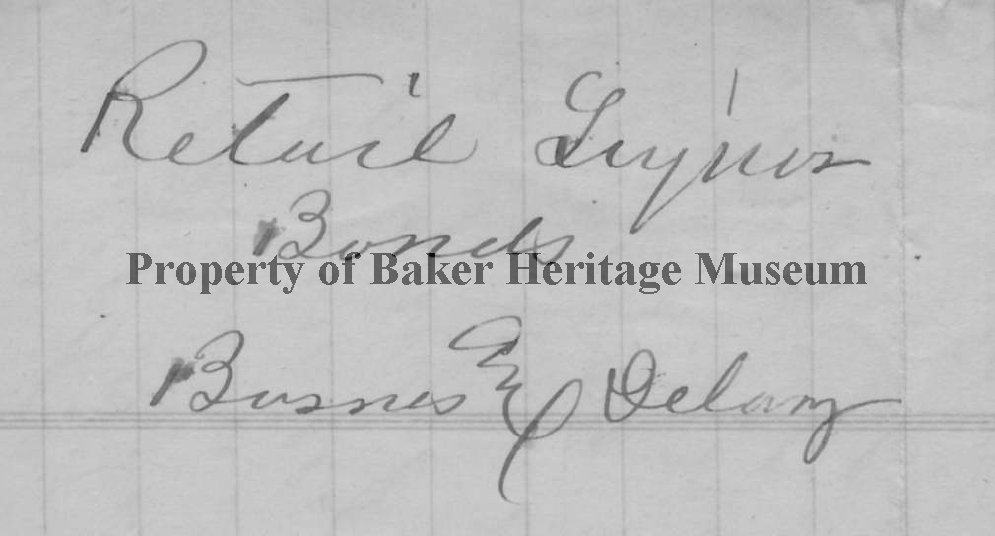 Retail Liquor
Bonds
Property of Baker Heritage Museum
Barnes & Delany